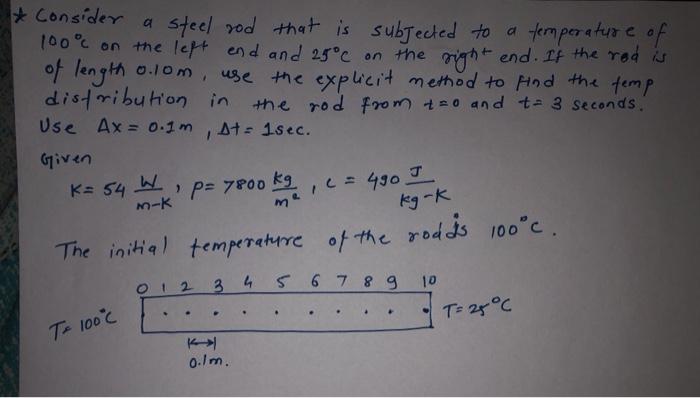 * Consider a steel rod that is subjected to a temperature of
100°C on the left end and 25°C on the right end. If the rod is
of length 0.10m, use the explicit method to find the temp
distribution in the rod from t=0 and t= 3 seconds.
Use Δx = 0.1m, Δt= 1sec.
Given
K= 54 W/m-K, ρ= 7800 kg/m², c = 490 J/kg-K
The initial temperature of the rod is 100°C.
0 1 2 3 4 5 6 7 8 9 10
T= 100°C T= 25°C
0.1m.